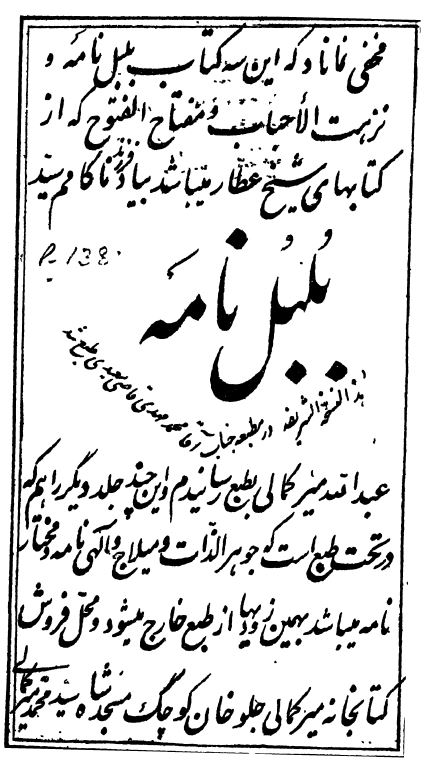 مخفی نماناد که این سه کتاب بلبل نامه و
نزهت الأحباب و مفتاح الفتوح که از
کتابهای شیخ عطار میباشد بیاد فرزند ناکامم سید
P. 138
بُلبُل نامه
هذا النسخة الشریفه در مطبعه جناب آقا محمد مهدی قاضی سعیدی طبع شد
عبدالله میر کمالی بطبع رسانیدم و این چند جلد دیگر را هم که
در تحت طبع است که جوهر الذّات و میلاج و آلهی نامه و مختار
نامه میباشد بهمین زودیها از طبع خارج میشود و محل فروش
کتابخانه میر کمالی جلو خان کوچک مسجد شاه سید محمد میر کمالی